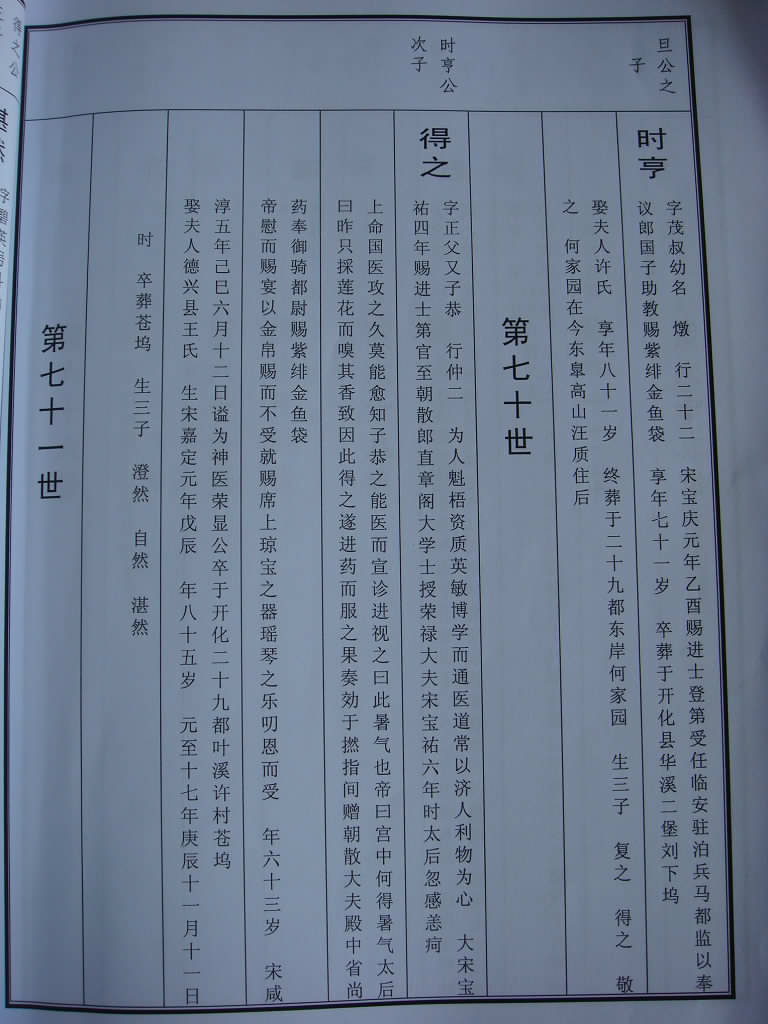 旦公之
子
时亨
字茂叔幼名　燉　行二十二　宋宝庆元年乙酉赐进士登第受任临安驻泊兵马都监以奉
议郎国子助教赐紫绯金鱼袋　享年七十一岁　卒葬于开化县华溪二堡刘下坞
娶夫人许氏　享年八十一岁　终葬于二十九都东岸何家园　生三子　复之　得之　敬
之　何家园在今东皐高山汪质住后
第七十世
时亨公
次子
得之
字正父又子恭　行仲二　为人魁梧资质英敏博学而通医道常以济人利物为心　大宋宝
祐四年赐进士第官至朝散郎直章阁大学士授荣禄大夫宋宝祐六年时太后忽感恙疴
上命国医攻之久莫能愈知子恭之能医而宣诊进视之曰此暑气也帝曰宫中何得暑气太后
曰昨只採莲花而嗅其香致因此得之遂进药而服之果奏効于撚指间赠朝散大夫殿中省尚
药奉御骑都尉赐紫绯金鱼袋
帝慰而赐宴以金帛赐而不受就赐席上琼宝之器瑶琴之乐叨恩而受　年六十三岁　宋咸
淳五年己巳六月十二日谥为神医荣显公卒于开化二十九都叶溪许村苍坞
娶夫人德兴县王氏　生宋嘉定元年戊辰　年八十五岁　元至十七年庚辰十一月十一日
时　卒葬苍坞　生三子　澄然　自然　湛然
第七十一世
得之公